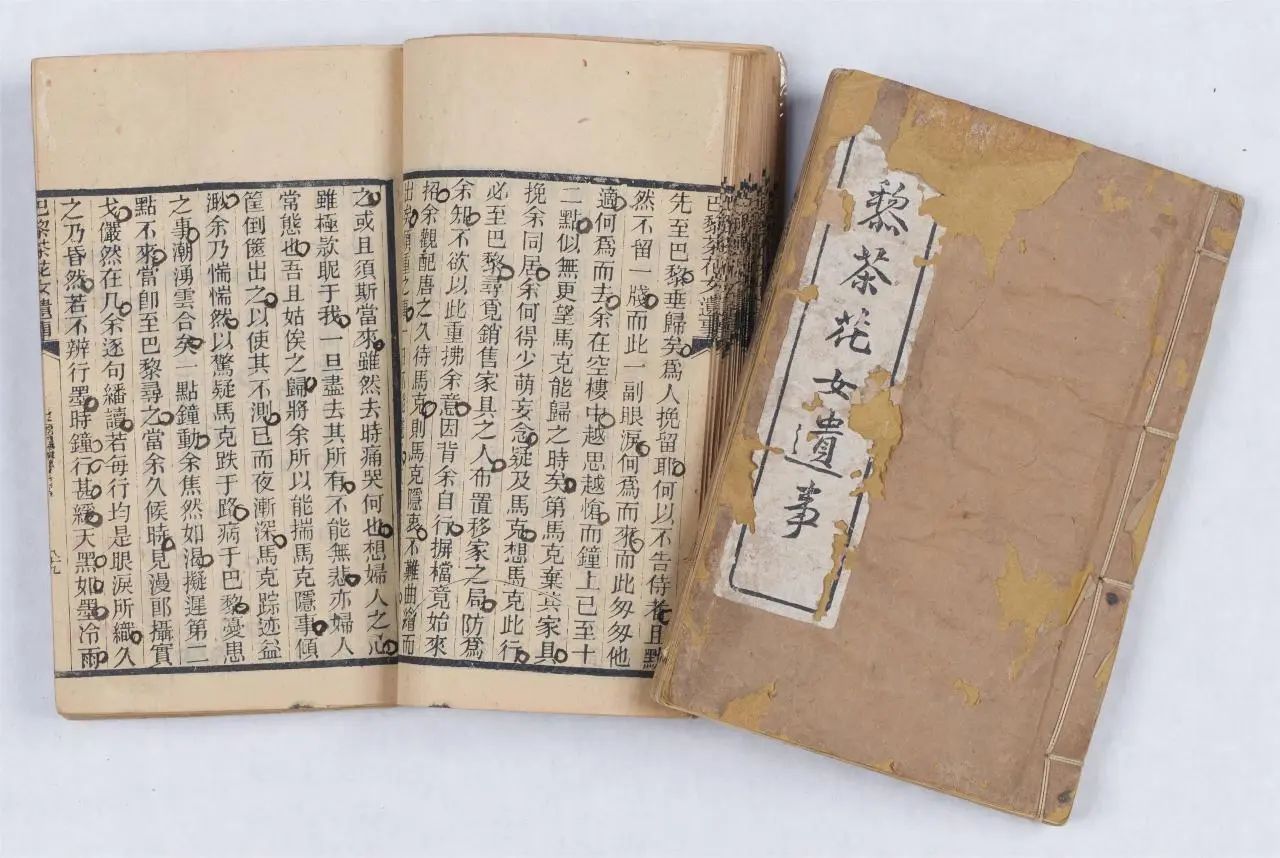 巴黎茶花女遺事
先至巴黎垂歸矣為人挽留耶何以不告侍者且點
然不留一牋而此一副眼淚何為而來而此匆匆他
適何為而去余在空樓中越思越愴而鐘上已至十
二點似無更望馬克能歸之時矣第馬克棄其家具
挽余同居余何得少萌妄念疑及馬克想馬克此行
必至巴黎尋覓銷售家具之人布置移家之局防為
余知不欲以此重拂余意因背余自行摒檔竟始來
招余觀配唐之久待馬克則馬克隱衷不難曲繪而
之或且須斯當來雖然去時痛哭何也想婦人之心
雖極款昵于我一旦盡去其所有不能無悲亦婦人
常態也吾且姑俟之歸將余所以能揣馬克隱事傾
筐倒篋出之以使其不測已而夜漸深馬克踪迹益
湫余乃惴惴然以驚疑馬克跌于路病于巴黎憂患
之事潮湧雲合矣一點鐘動余焦然如渴擬遲第二
點不來當卽至巴黎尋之當余久候時見漫郎攝實
戈儼然在几余逐句繙讀若每行均是眼淚所織久
之乃昏然若不辨行墨時鐘行甚緩天黑如墨冷雨
巴黎茶花女遺事
黎茶花女遺事